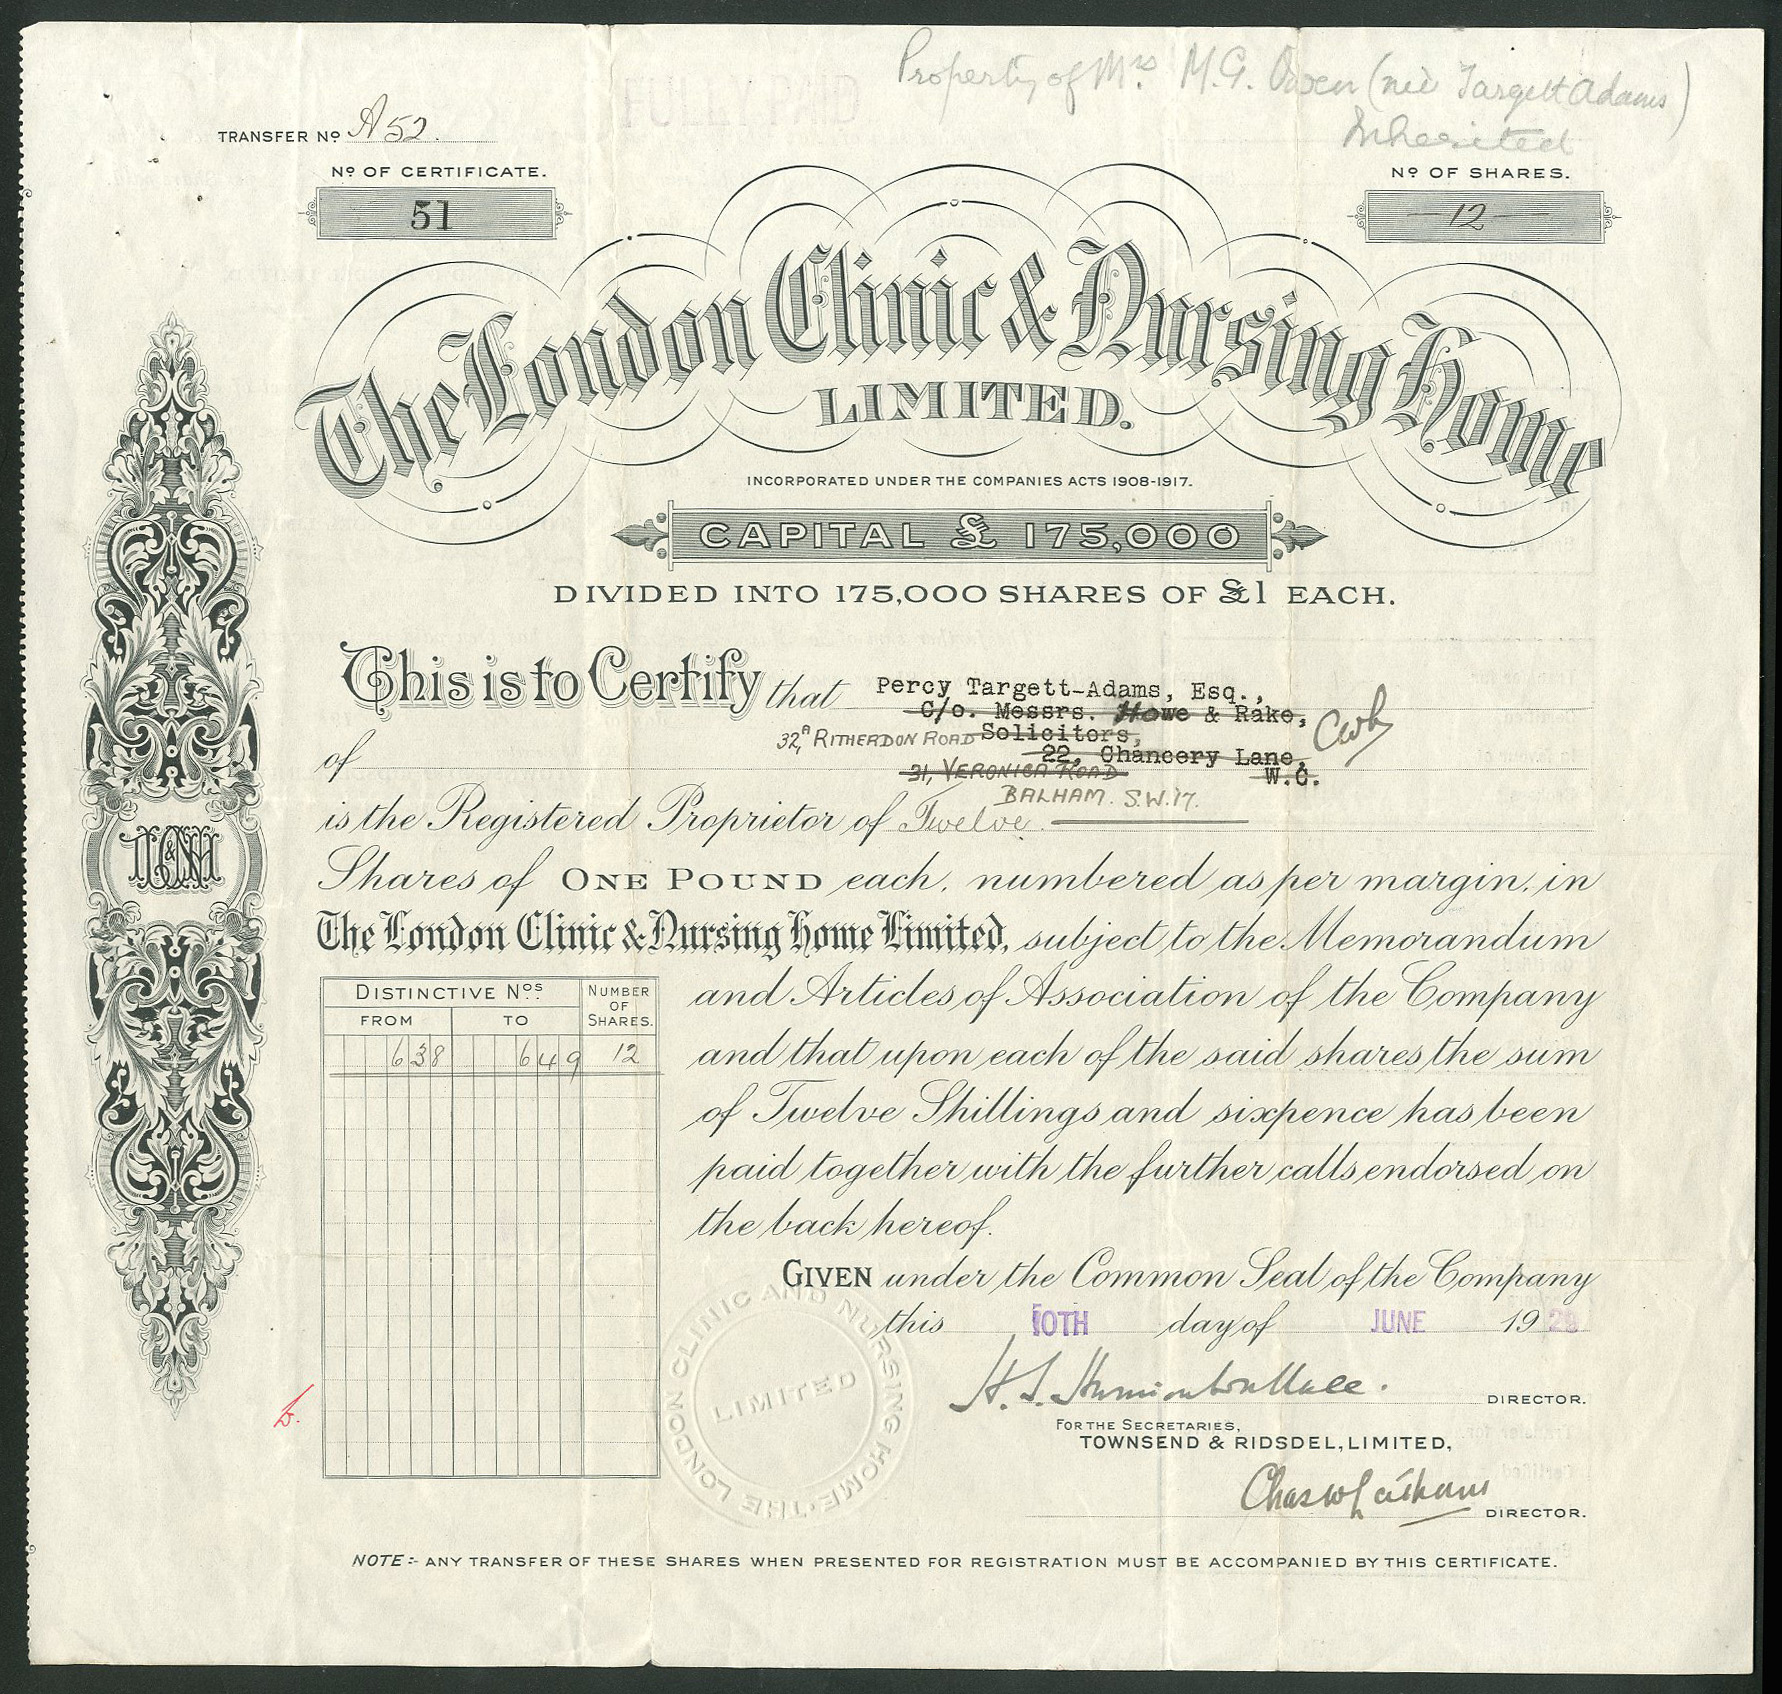 Property of Mrs M.G. Owen (née Targett Adams)
Inherited
TRANSFER No A52.
No OF CERTIFICATE.
51
No OF SHARES.
12
The London Clinic & Nursing Home
LIMITED.
INCORPORATED UNDER THE COMPANIES ACTS 1908-1917.
CAPITAL £ 175,000
DIVIDED INTO 175,000 SHARES OF £1 EACH.
This is to Certify that Percy Targett-Adams, Esq.,
C/o. Messrs. Howe & Rake,
32A RITHERDON ROAD Solicitors,
of 22, Chancery Lane,
31, VERONICA ROAD W.C.
BALHAM. S.W.17.
is the Registered Proprietor of Twelve.
Shares of ONE POUND each, numbered as per margin, in
The London Clinic & Nursing Home Limited, subject to the Memorandum
and Articles of Association of the Company
and that upon each of the said shares the sum
of Twelve Shillings and sixpence has been
paid together with the further calls endorsed on
the back hereof.
DISTINCTIVE Nos.
NUMBER OF SHARES.
FROM TO
638 649 12
GIVEN under the Common Seal of the Company
this 10TH day of JUNE 1928
DIRECTOR.
FOR THE SECRETARIES,
TOWNSEND & RIDSDEL, LIMITED,
DIRECTOR.
THE LONDON CLINIC AND NURSING HOME
LIMITED
NOTE:- ANY TRANSFER OF THESE SHARES WHEN PRESENTED FOR REGISTRATION MUST BE ACCOMPANIED BY THIS CERTIFICATE.